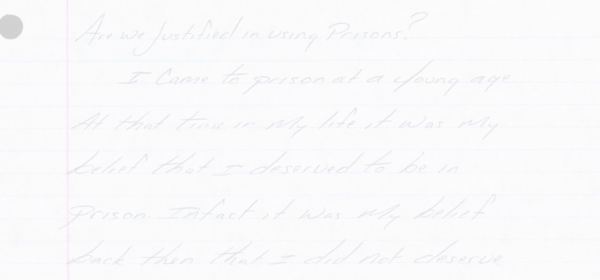 Are we Justified in using Prisons?
I Came to prison at a young age
At that time in My life it was my
belief that I deserved to be in
prison. Infact it was My belief
back then that I did not deserve